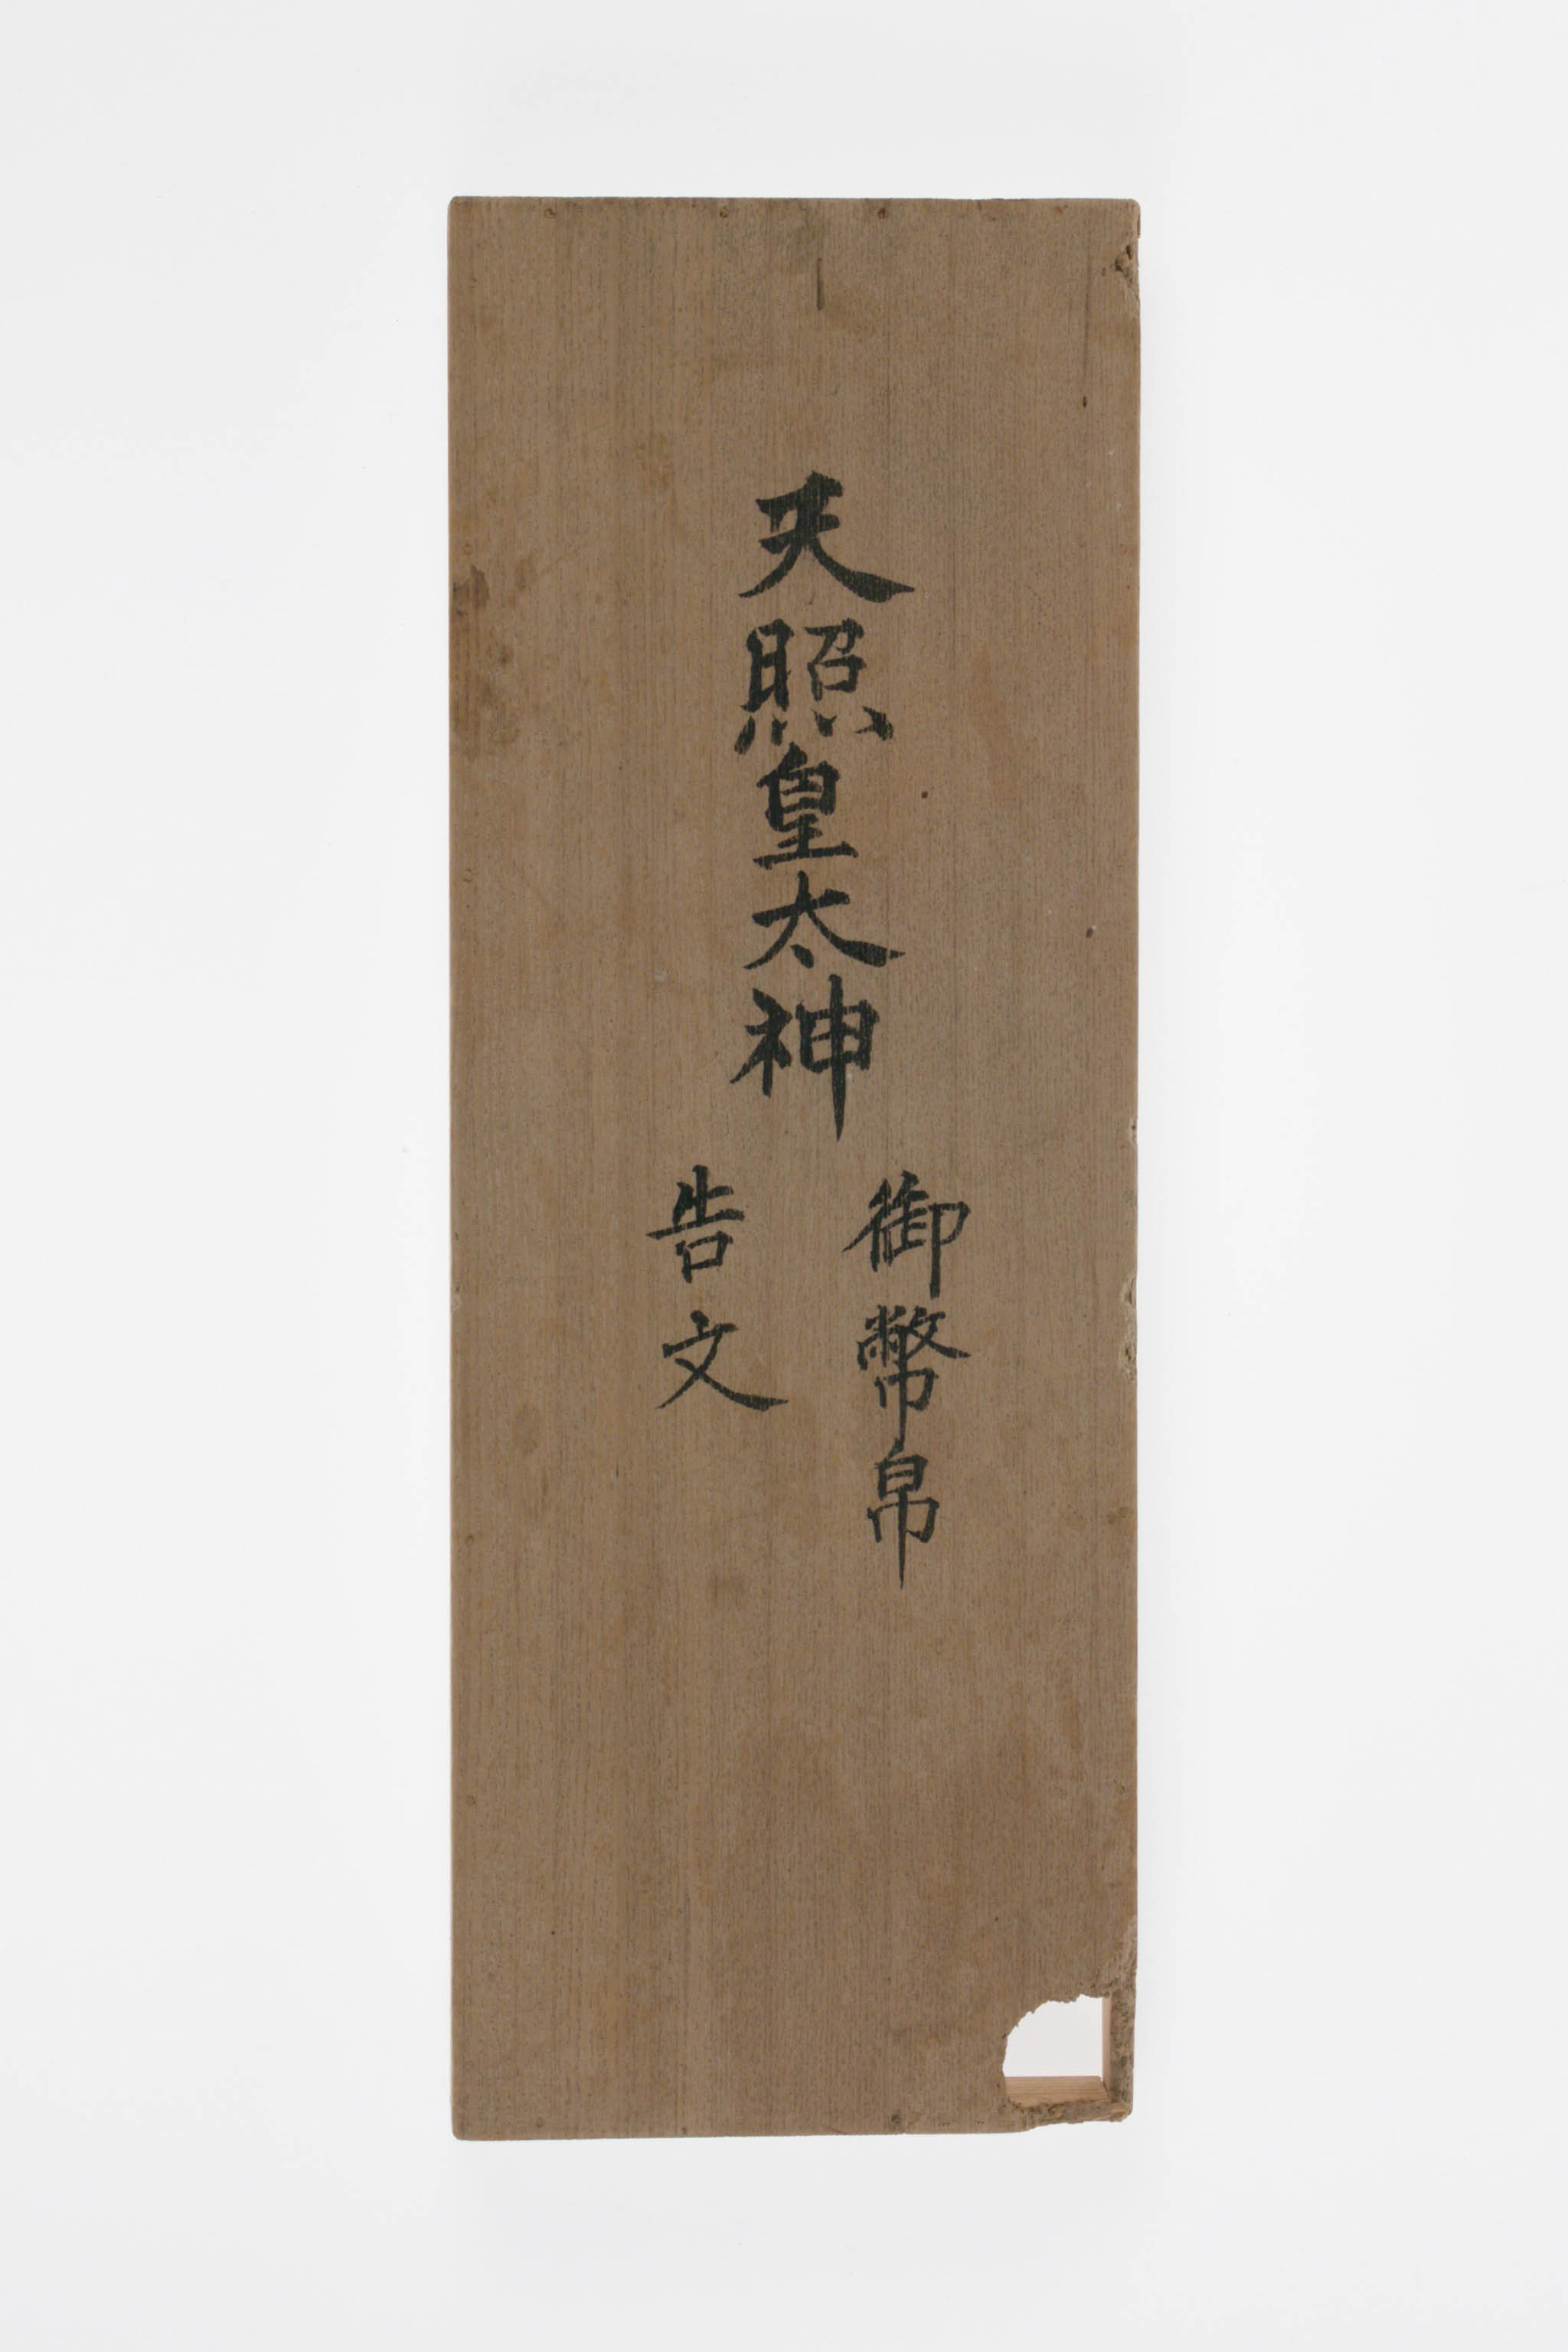 天照皇太神
御幣帛
告文